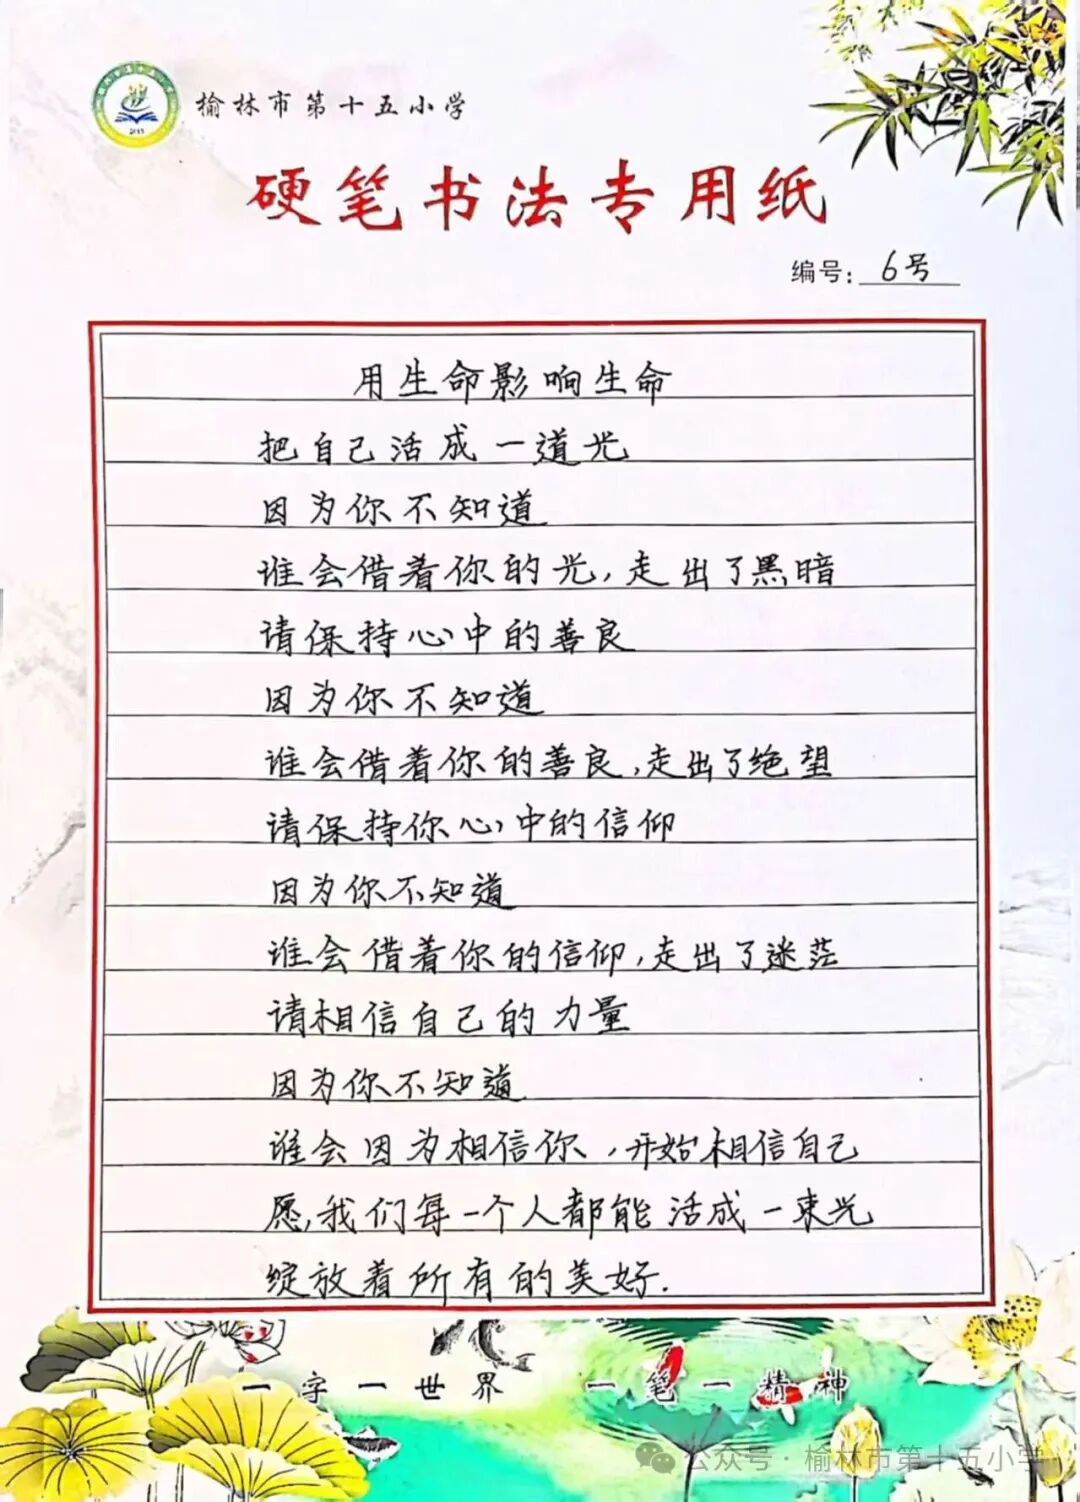 榆林市第十五小学
硬笔书法专用纸
编号: 6号
用生命影响生命
把自己活成一道光
因为你不知道
谁会借着你的光,走出了黑暗
请保持心中的善良
因为你不知道
谁会借着你的善良,走出了绝望
请保持你心中的信仰
因为你不知道
谁会借着你的信仰,走出了迷茫
请相信自己的力量
因为你不知道
谁会因为相信你,开始相信自己
愿,我们每一个人都能活成一束光
绽放着所有的美好.
一字一世界 一笔一精神
公众号·榆林市第十五小学